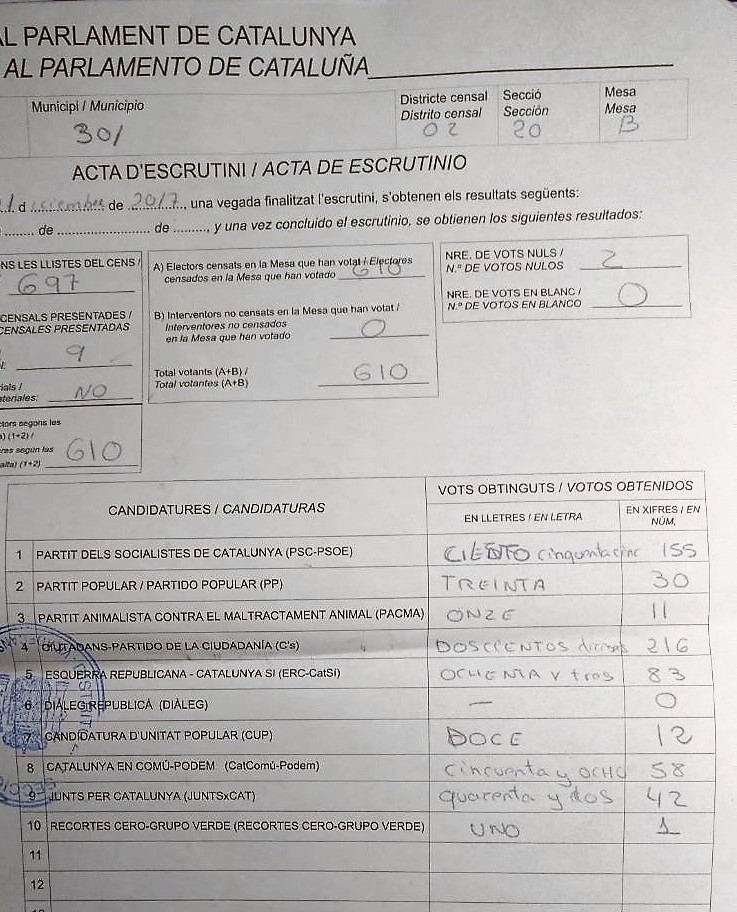 AL PARLAMENT DE CATALUNYA
AL PARLAMENTO DE CATALUÑA
Municipi / Municipio
301
Districte censal
Distrito censal
02
Secció
Sección
20
Mesa
Mesa
B
ACTA D'ESCRUTINI / ACTA DE ESCRUTINIO
de 2017, una vegada finalitzat l'escrutini, s'obtenen els resultats següents:
de ........ de ........, y una vez concluido el escrutinio, se obtienen los siguientes resultados:
NS LES LLISTES DEL CENS /
697
CENSALS PRESENTADES /
CENSALES PRESENTADAS
9
ials /
ateriales: NO
ctors segons les
a) (1+2) /
res según las
alta) (1+2) 610
A) Electors censats en la Mesa que han votat / Electores
censados en la Mesa que han votado 610
B) Interventors no censats en la Mesa que han votat /
Interventores no censados
en la Mesa que han votado 0
Total votants (A+B) /
Total votantes (A+B) 610
NRE. DE VOTS NULS /
N.º DE VOTOS NULOS 2
NRE. DE VOTS EN BLANC /
N.º DE VOTOS EN BLANCO 0
CANDIDATURES / CANDIDATURAS
VOTS OBTINGUTS / VOTOS OBTENIDOS
EN LLETRES / EN LETRA
EN XIFRES / EN
NÚM.
1 PARTIT DELS SOCIALISTES DE CATALUNYA (PSC-PSOE) CIENTO 155
2 PARTIT POPULAR / PARTIDO POPULAR (PP) TREINTA 30
3 PARTIT ANIMALISTA CONTRA EL MALTRACTAMENT ANIMAL (PACMA) ONZE 11
4 CIUTADANS-PARTIDO DE LA CIUDADANÍA (C's) DOSCIENTOS 216
5 ESQUERRA REPUBLICANA - CATALUNYA SI (ERC-CatSi) OCHENTA Y tres 83
6 DIÀLEG REPUBLICÀ (DIÀLEG) — 0
7 CANDIDATURA D'UNITAT POPULAR (CUP) DOCE 12
8 CATALUNYA EN COMÚ-PODEM (CatComú-Podem) cincuenta y OCHO 58
9 JUNTS PER CATALUNYA (JUNTSxCAT) quarenta y dos 42
10 RECORTES CERO-GRUPO VERDE (RECORTES CERO-GRUPO VERDE) UNO 1
11
12